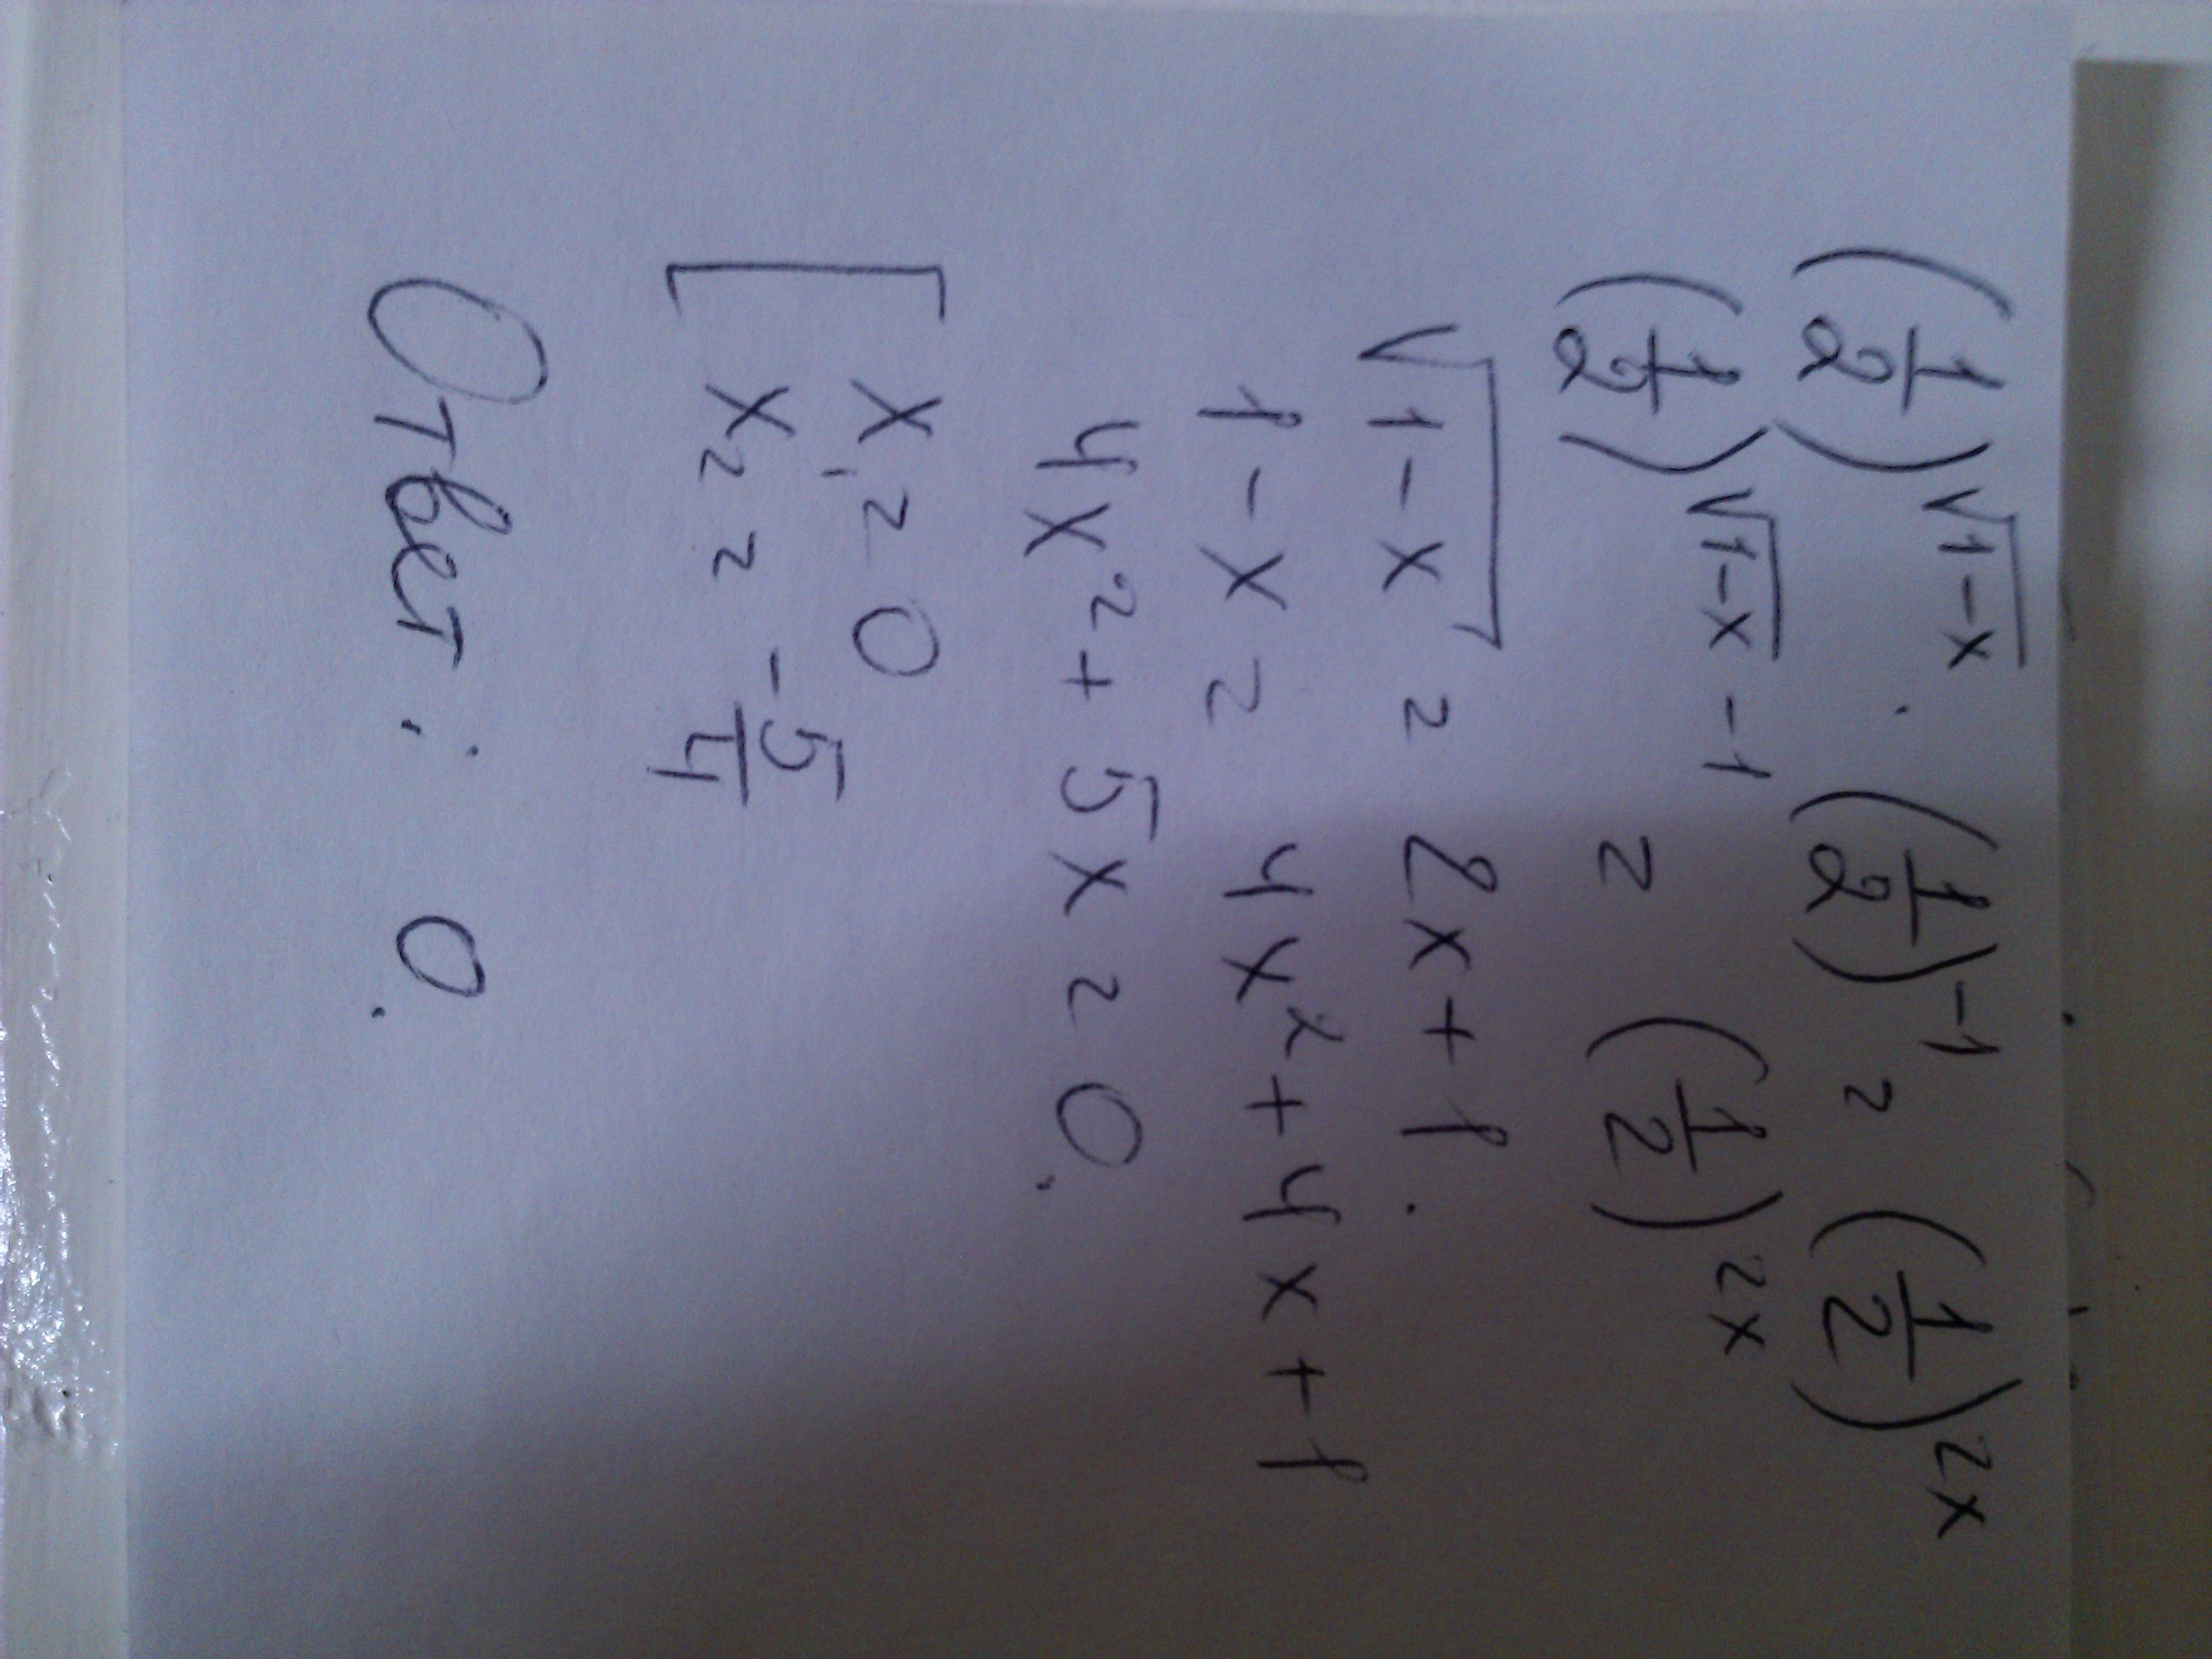 (1/2)^√(1-x) · (1/2)^-1 = (1/2)^2x
(1/2)^√(1-x) -1 = (1/2)^2x
√(1-x) = 2x+1.
1-x = 4x²+4x+1
4x²+5x=0.
[ x₁=0
x₂ = -5/4
Ответ: 0.